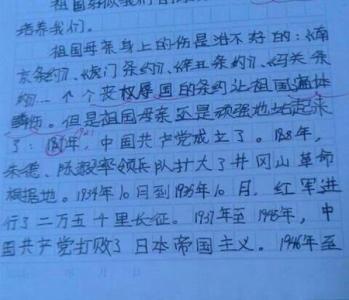 祖国好似我们
培养我们。
祖国母亲身上的伤是治不好的:《南
京条约》、《虎门条约》、《辛丑条约》、《马关条
约》…个个丧权辱国的条约让祖国遍体
鳞伤。但是祖国母亲还是顽强地站起来
了:1921年,中国共产党成立了。1928年,
朱德、陈毅率领兵队扩大了井冈山革命
根据地。1934年10月到1935年10月,红军进
行了二万五千里长征。1937年至1945年,中
国共产党打败了日本帝国主义。1946年至